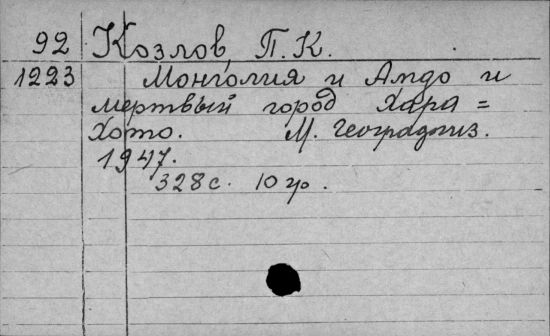 92 Козлов, П. К.
1223 Монголия и Амдо и
мертвый город Хара =
Хото. М. Географгиз.
1947.
328 с. 10 р.